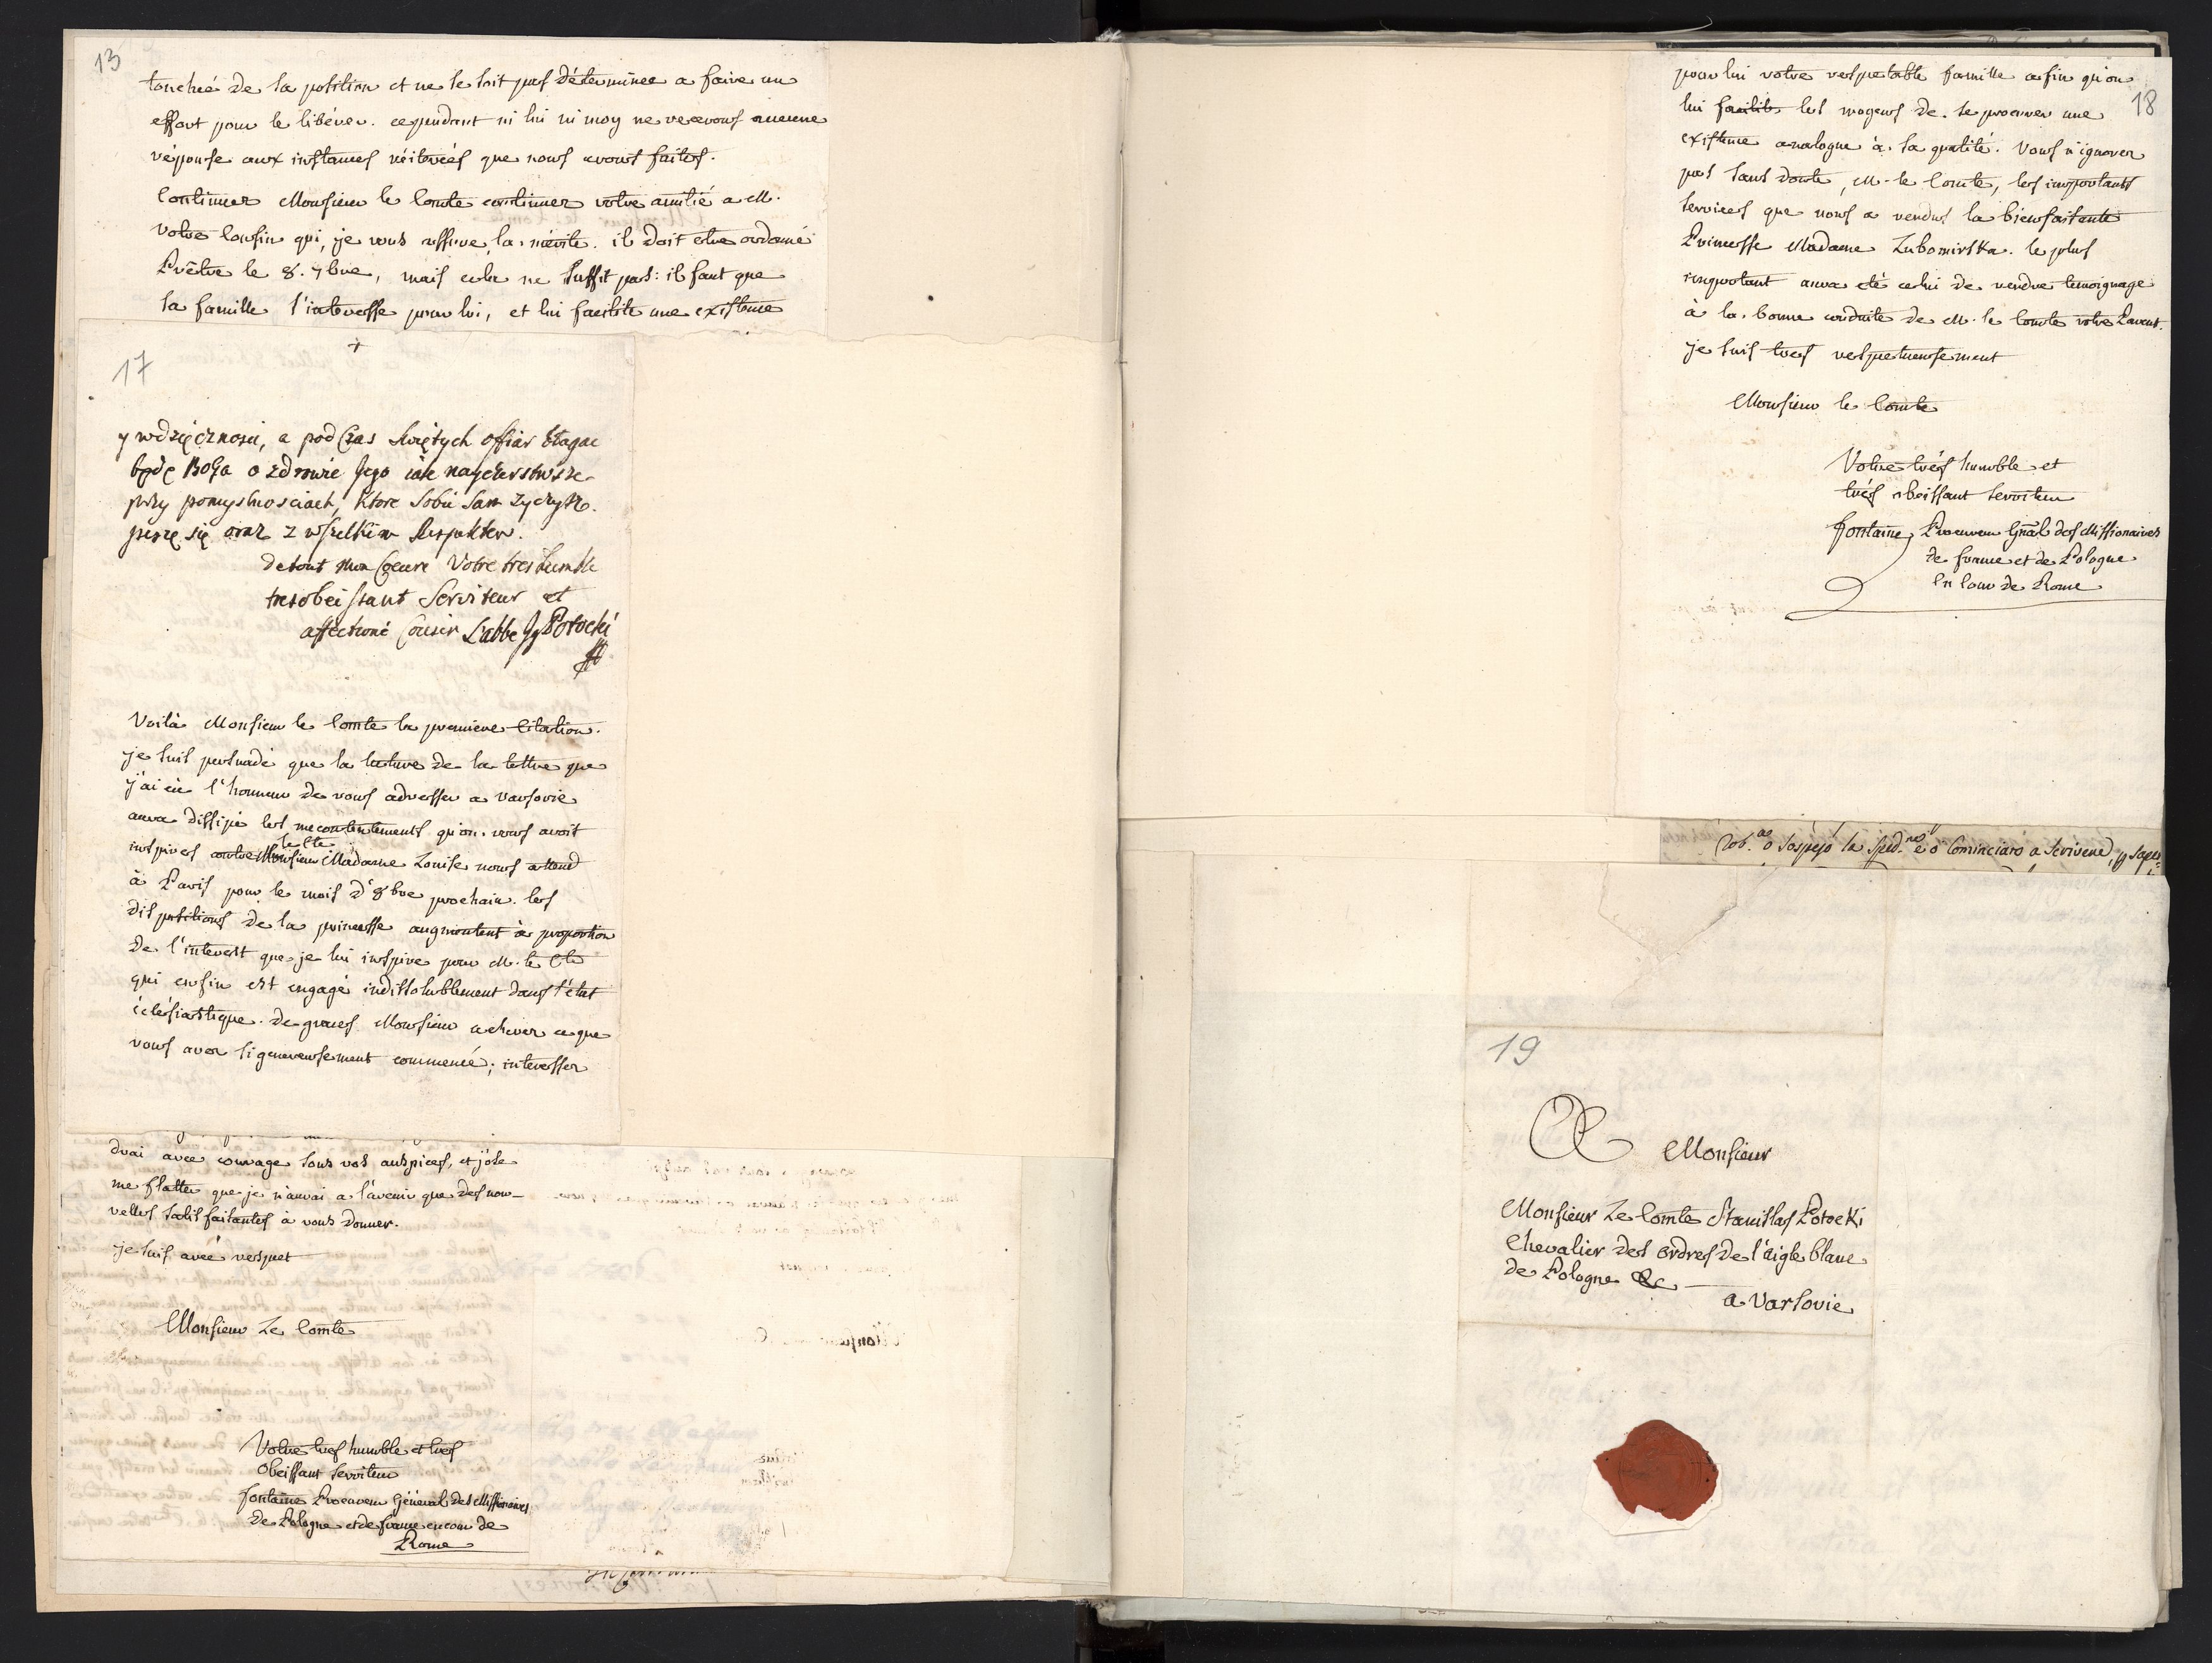 13
touchée de sa position et ne se soit pas déterminée a faire un
effort pour le libérer. cependant ni lui ni moy ne recevons aucune
réponse aux instances réiterées que nous avons faites.
Continuer Monsieur le Comte continuer votre amitié a M.
Votre Cousin qui, je vous assure, la mérite. il doit etre ordonné
Prêtre le 8. 7bre, mais cela ne suffit pas: il faut que
sa famille s'interesse pour lui, et lui facilite une existence
17
y wdzięcznosci, a podczas Swiętych offiar błagac
będę Boga o zdrowie Jego iak nayczerstwsze
przy pomyslnosciach, ktore sobie sam zyczysz.
piszę się oraz z wszelkim Respektem.
de tout mon Coeure Votre tres humble
tresobeissant Serviteur et
affectioné Cousin L'abbe Jg Potocki
Voilà Monsieur le Comte la premiere Citation.
je suis persuadé que la lecture de la lettre que
j'ai eu l'honneur de vous adresser a Varsovie
aura dissipé les mecontentements qu'on vous avoit
inspirés contre Monsieur le Cte Madame Louise nous attend
à Paris pour le mois d'8bre prochain. les
dispositions de la princesse augmentent à proportion
de l'interest que je lui inspire pour M. le Cte
qui enfin est engagé indissolublement dans l'état
éclésiastique. de graces Monsieur achever ce que
vous avez si genereusement commencé; interesser
drai avec courage sous vos auspices, et j'ose
me flatter que je n'aurai a l'avenir que des nou-
velles satisfaisantes à vous donner.
je suis avec respect
Monsieur Le Comte
Votre tres humble et tres
obeissant serviteur
fontaine Procureur Général des Missionaires
de Pologne et de france en cour de
Rome
pour lui votre respetable famille afin qu'on
18
lui facilite les moyens de se procurer une
existence analogue à sa qualité. Vous n'ignorer
pas sans doute, M. le Comte, les importants
services que nous a rendus la bienfaisante
Princesse Madame Lubomirska. le plus
important aura eté celui de rendre temoignage
à la bonne conduite de M. le Comte votre Parent.
je suis tres respetueusement
Monsieur le Comte
Votre très humble et
très obeissant serviteur
fontaine Procureur Gñal des Missionaires
de france et de Pologne
En Cour de Rome
19
A Monsieur
Monsieur Le Comte Stanislas Potocki
Chevalier des ordres de l'aigle blanc
de Pologne &c
a Varsovie